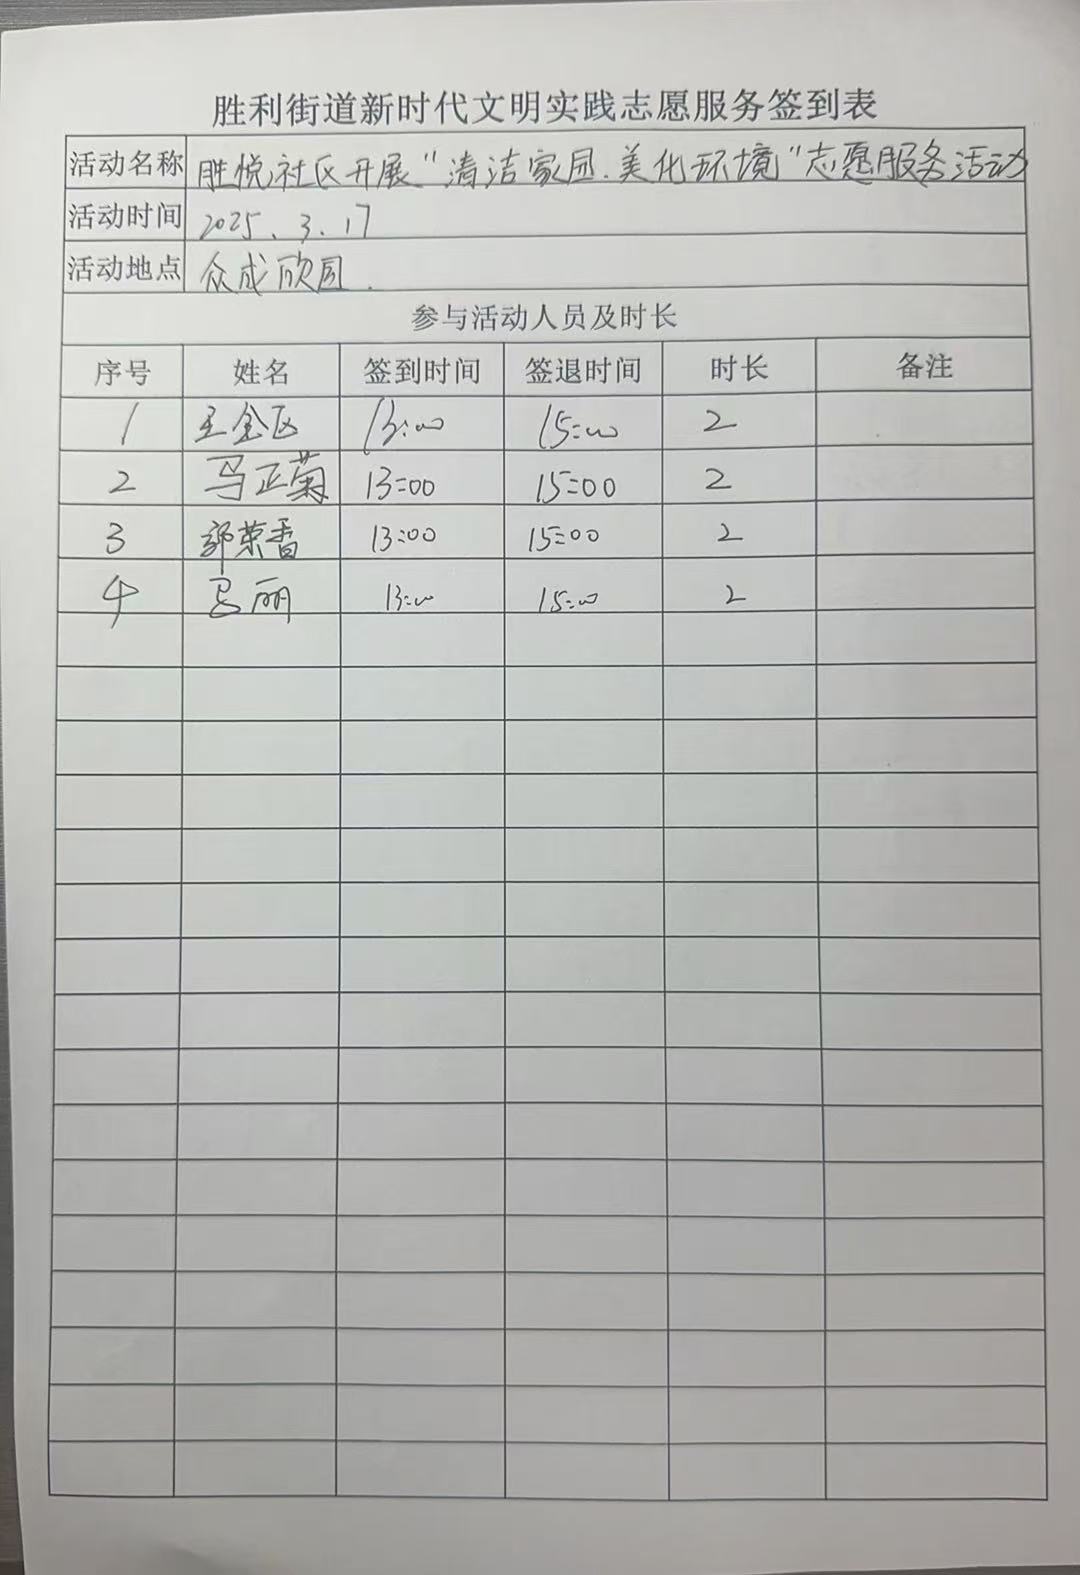 胜利街道新时代文明实践志愿服务签到表
活动名称 胜悦社区开展"清洁家园.美化环境"志愿服务活动
活动时间 2025.3.17
活动地点 众成欣园.
参与活动人员及时长
序号 姓名 签到时间 签退时间 时长 备注
1 13:00 15:00 2
2 马正菊 13:00 15:00 2
3 郭荣香 13:00 15:00 2
4 马丽 13:00 15:00 2